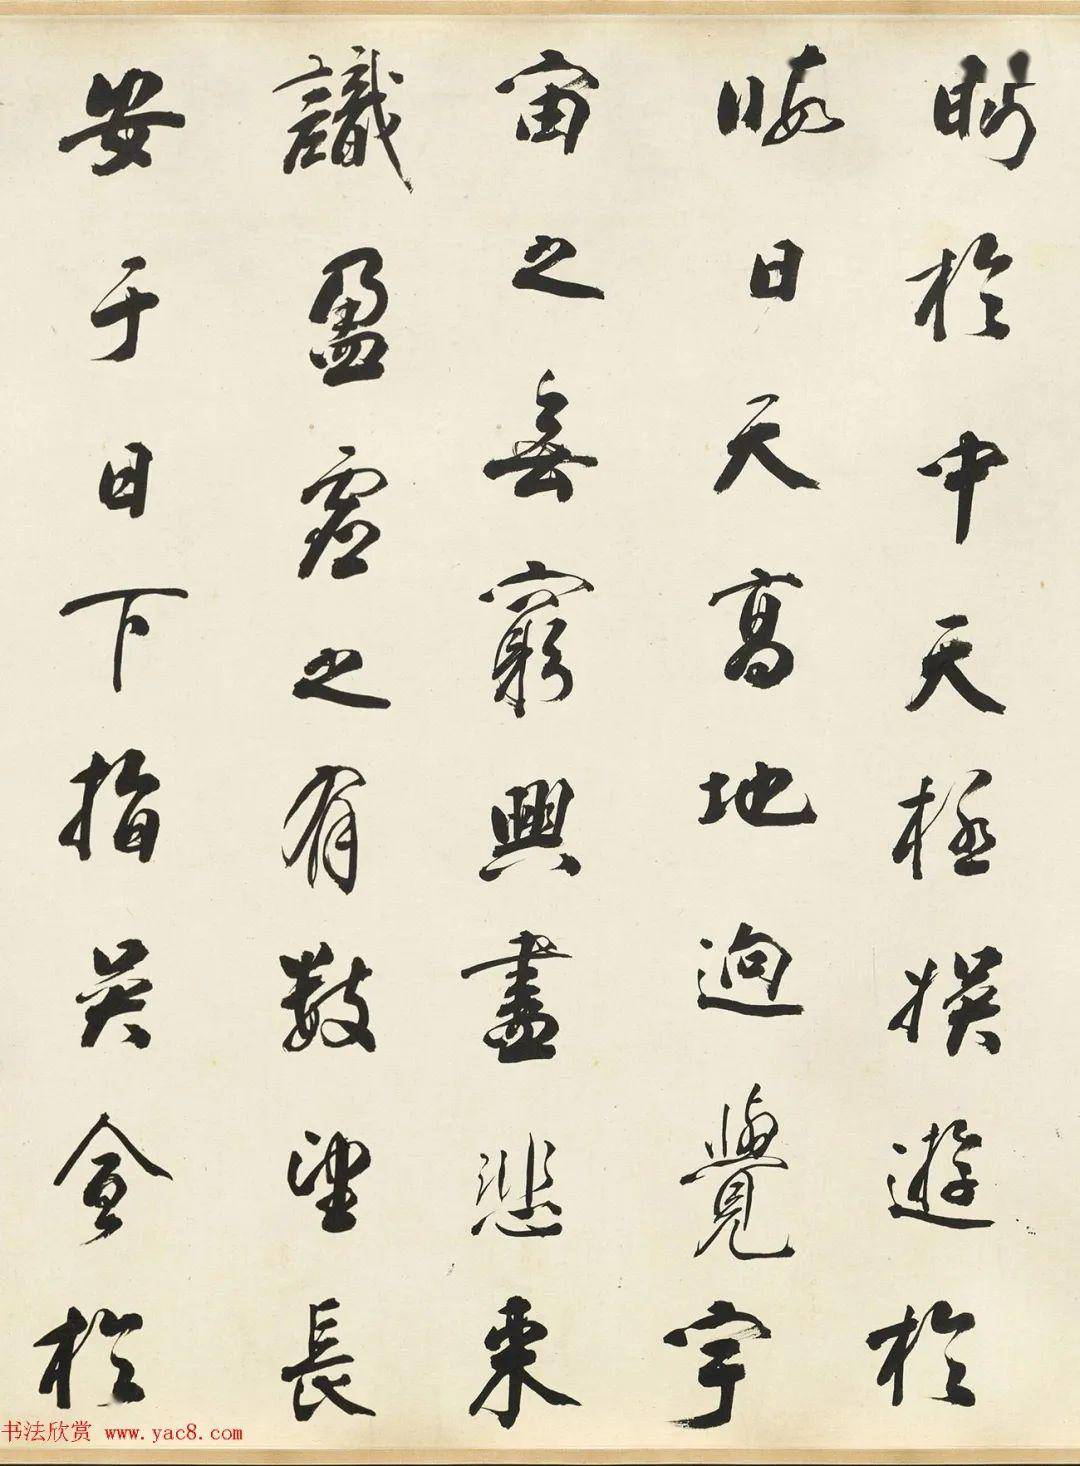 眄於中天極娛遊於
暇日天高地迥覺宇
宙之無窮興盡悲来
識盈虛之有數望長
安于日下指吳會於
书法欣赏 www.yac8.com